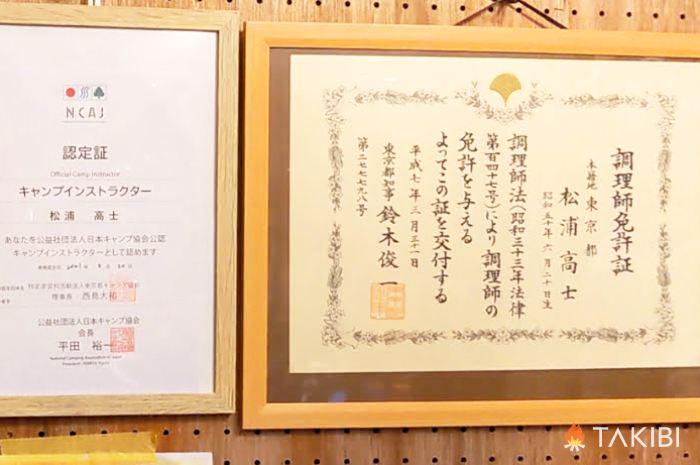 NCAJ
認定証
Official Camp Instructor
キャンプインストラクター
松浦 高士
あなたを公益社団法人日本キャンプ協会公認
キャンプインストラクターとして認めます
特定非営利活動法人東京都キャンプ協会
理事長 西島大祐
公益社団法人日本キャンプ協会
会長
平田 裕一
National Camping Association of Japan
調理師免許証
本籍地 東京都
松浦高士
昭和五十年六月二十日生
調理師法(昭和三十三年法律
第百四十七号)により調理師の
免許を与える
よってこの証を交付する
平成七年三月三十一日
東京都知事 鈴木俊一
第二七七七九八号
TAKIBI